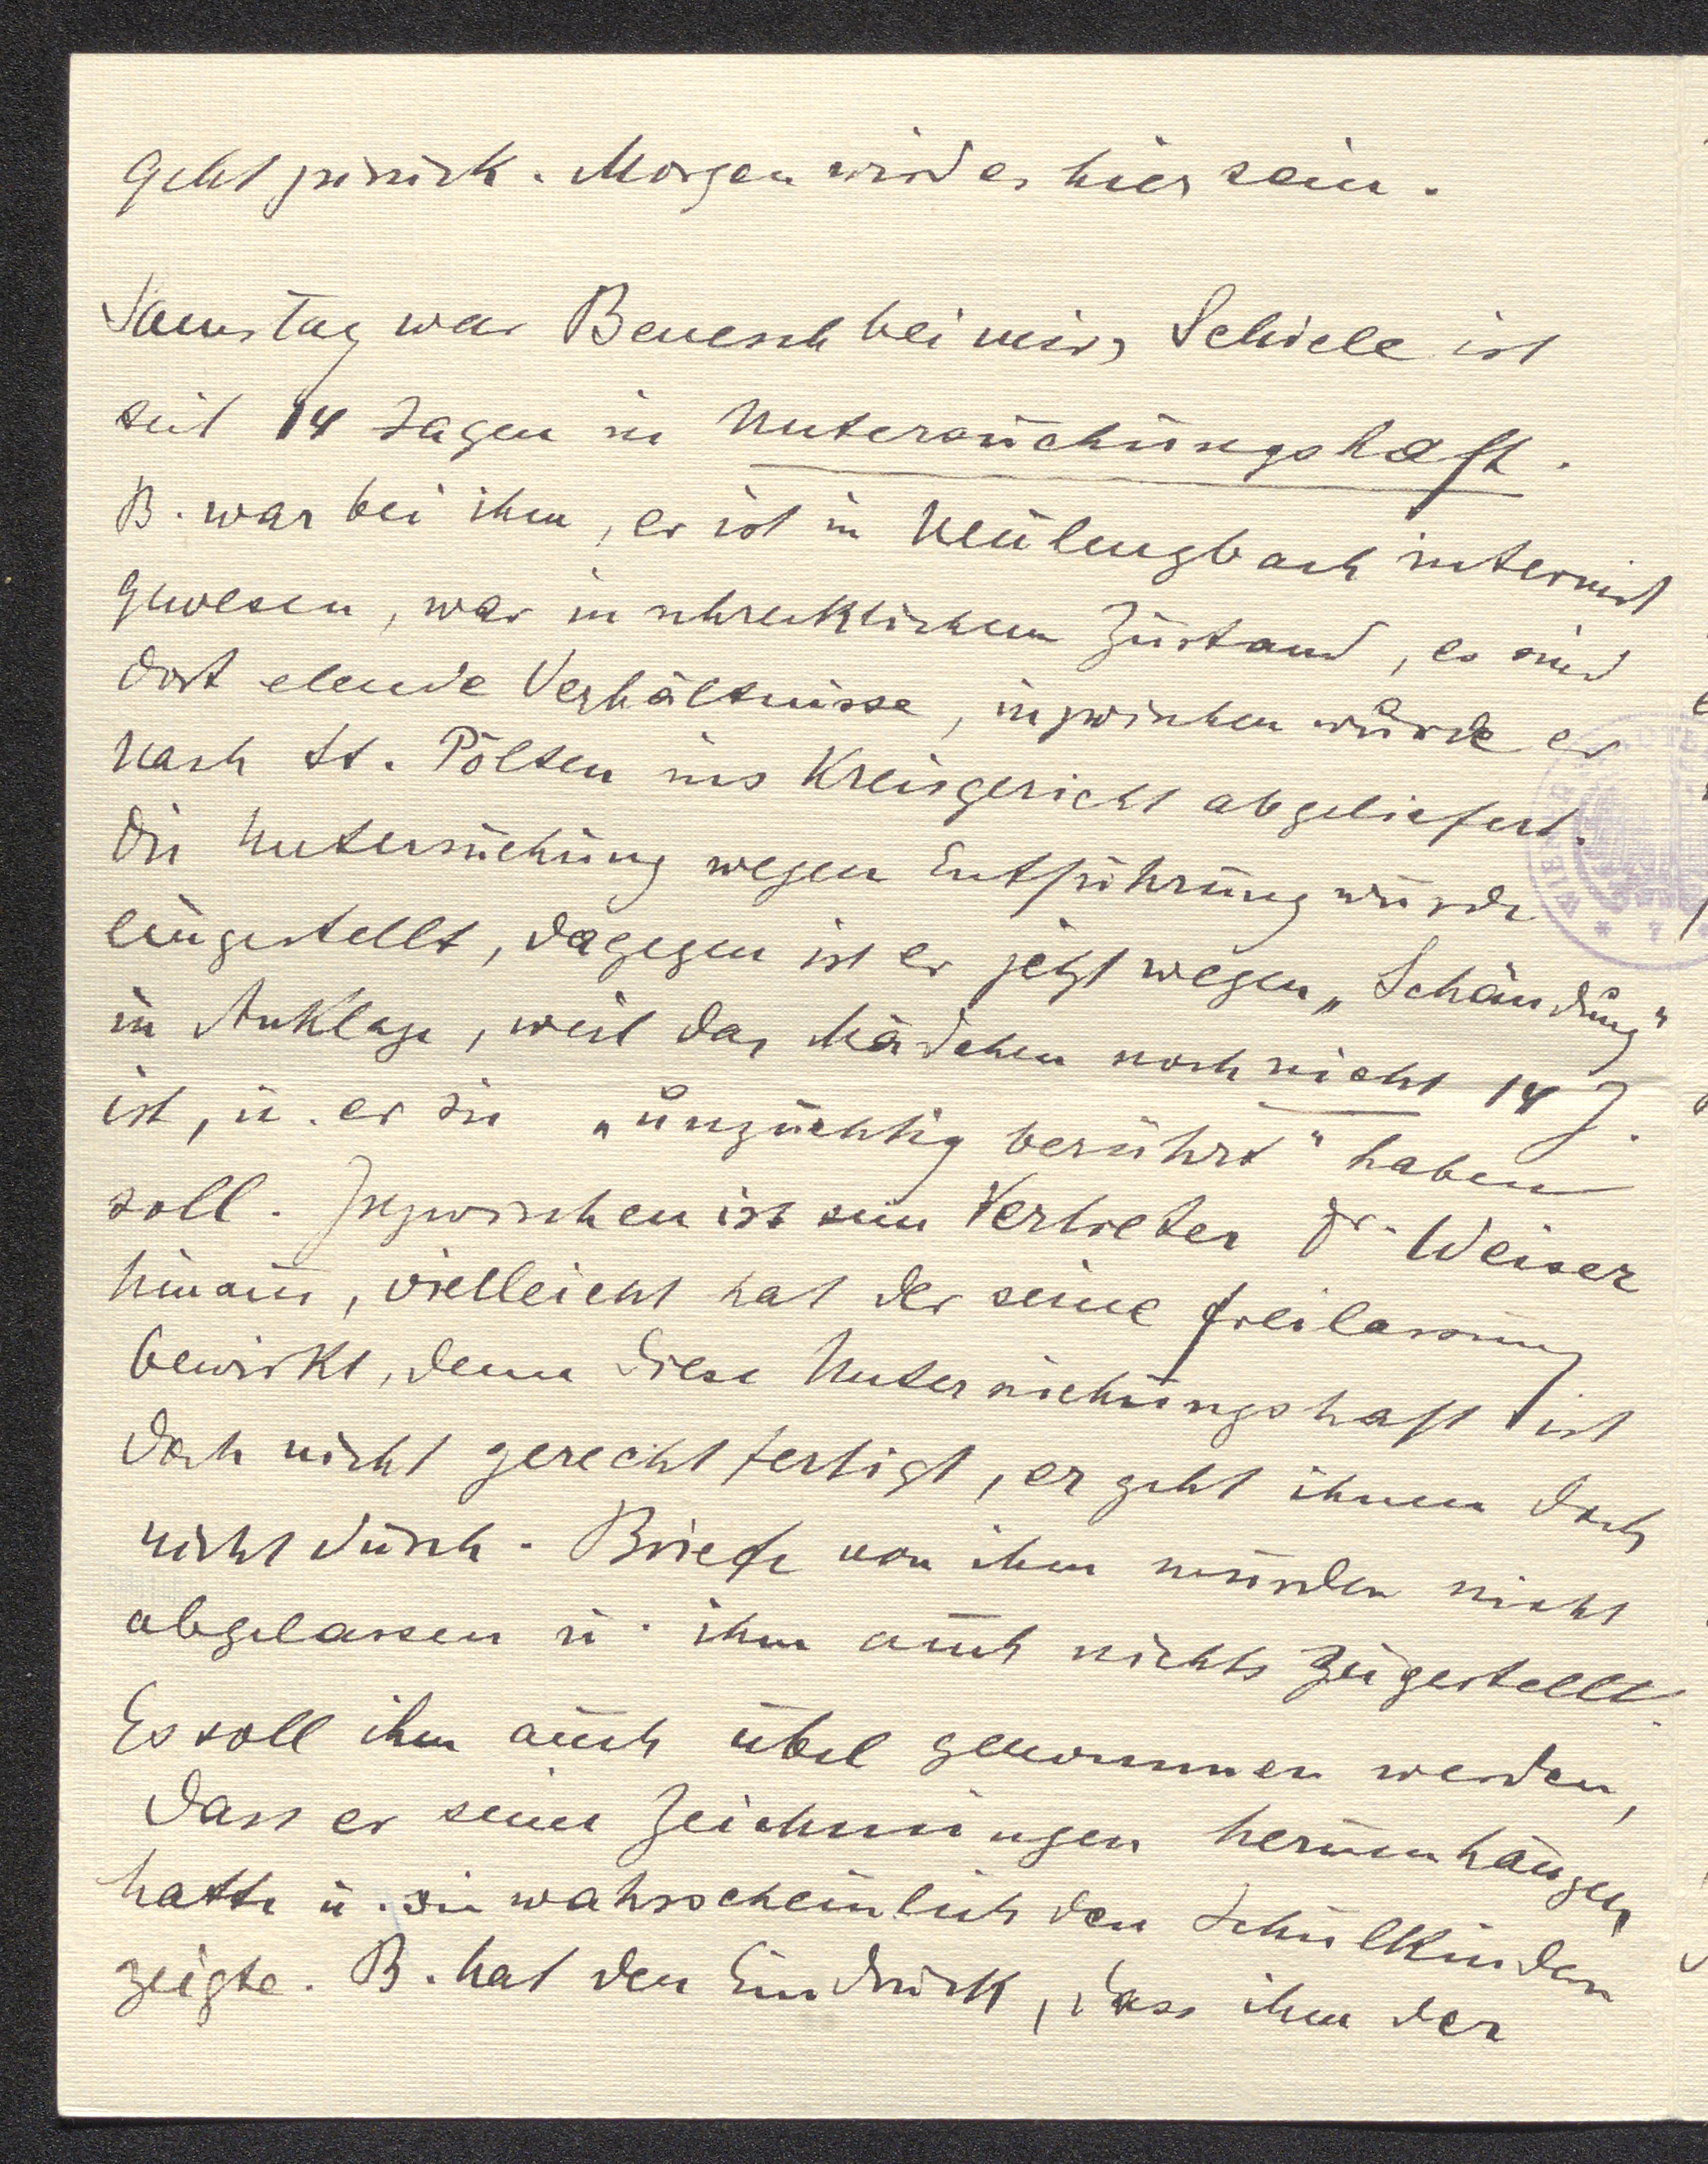 geht zurück. Morgen wird er hier sein.
Samstag war Benesch bei mir, Schiele ist
seit 14 Tagen in Untersuchungshaft.
B. war bei ihm, er ist in Neulengbach internirt
gewesen, war in schrecklichem Zustand, es sind
dort elende Verhältnisse, inzwischen wurde er
nach St. Pölten ins Kreisgericht abgeliefert.
Die Untersuchung wegen Entführung wurde
eingestellt, dagegen ist er jetzt wegen „Schändung"
in Anklage, weil das Mädchen noch nicht 14 J.
ist, u. er sie „unzüchtig berührt" haben
soll. Inzwischen ist sein Vertreter Dr. Weiser
hinaus, vielleicht hat der seine Freilassung
bewirkt, denn diese Untersuchungshaft ist
doch nicht gerechtfertigt, er geht ihnen doch
nicht durch. Briefe von ihm wurden nicht
abgelassen u. ihm auch nichts zugestellt.
Es soll ihm auch übel genommen werden,
dass er seine Zeichnungen herumhängen
hatte u. sie wahrscheinlich den Schulkindern
zeigte. B. hat den Eindruck, dass ihm der
WIENER